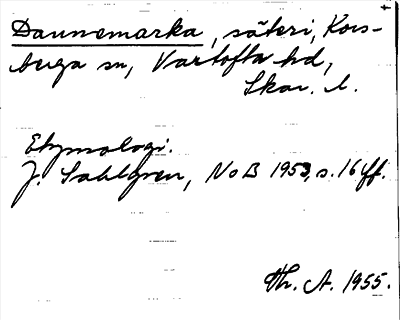 Dannemarka, säteri, Kors-
berga sn, Vartofta hd,
Skar. l.
Etymologi.
J. Sahlgren, NoB 1953, s. 16 ff.
Th. A. 1955.